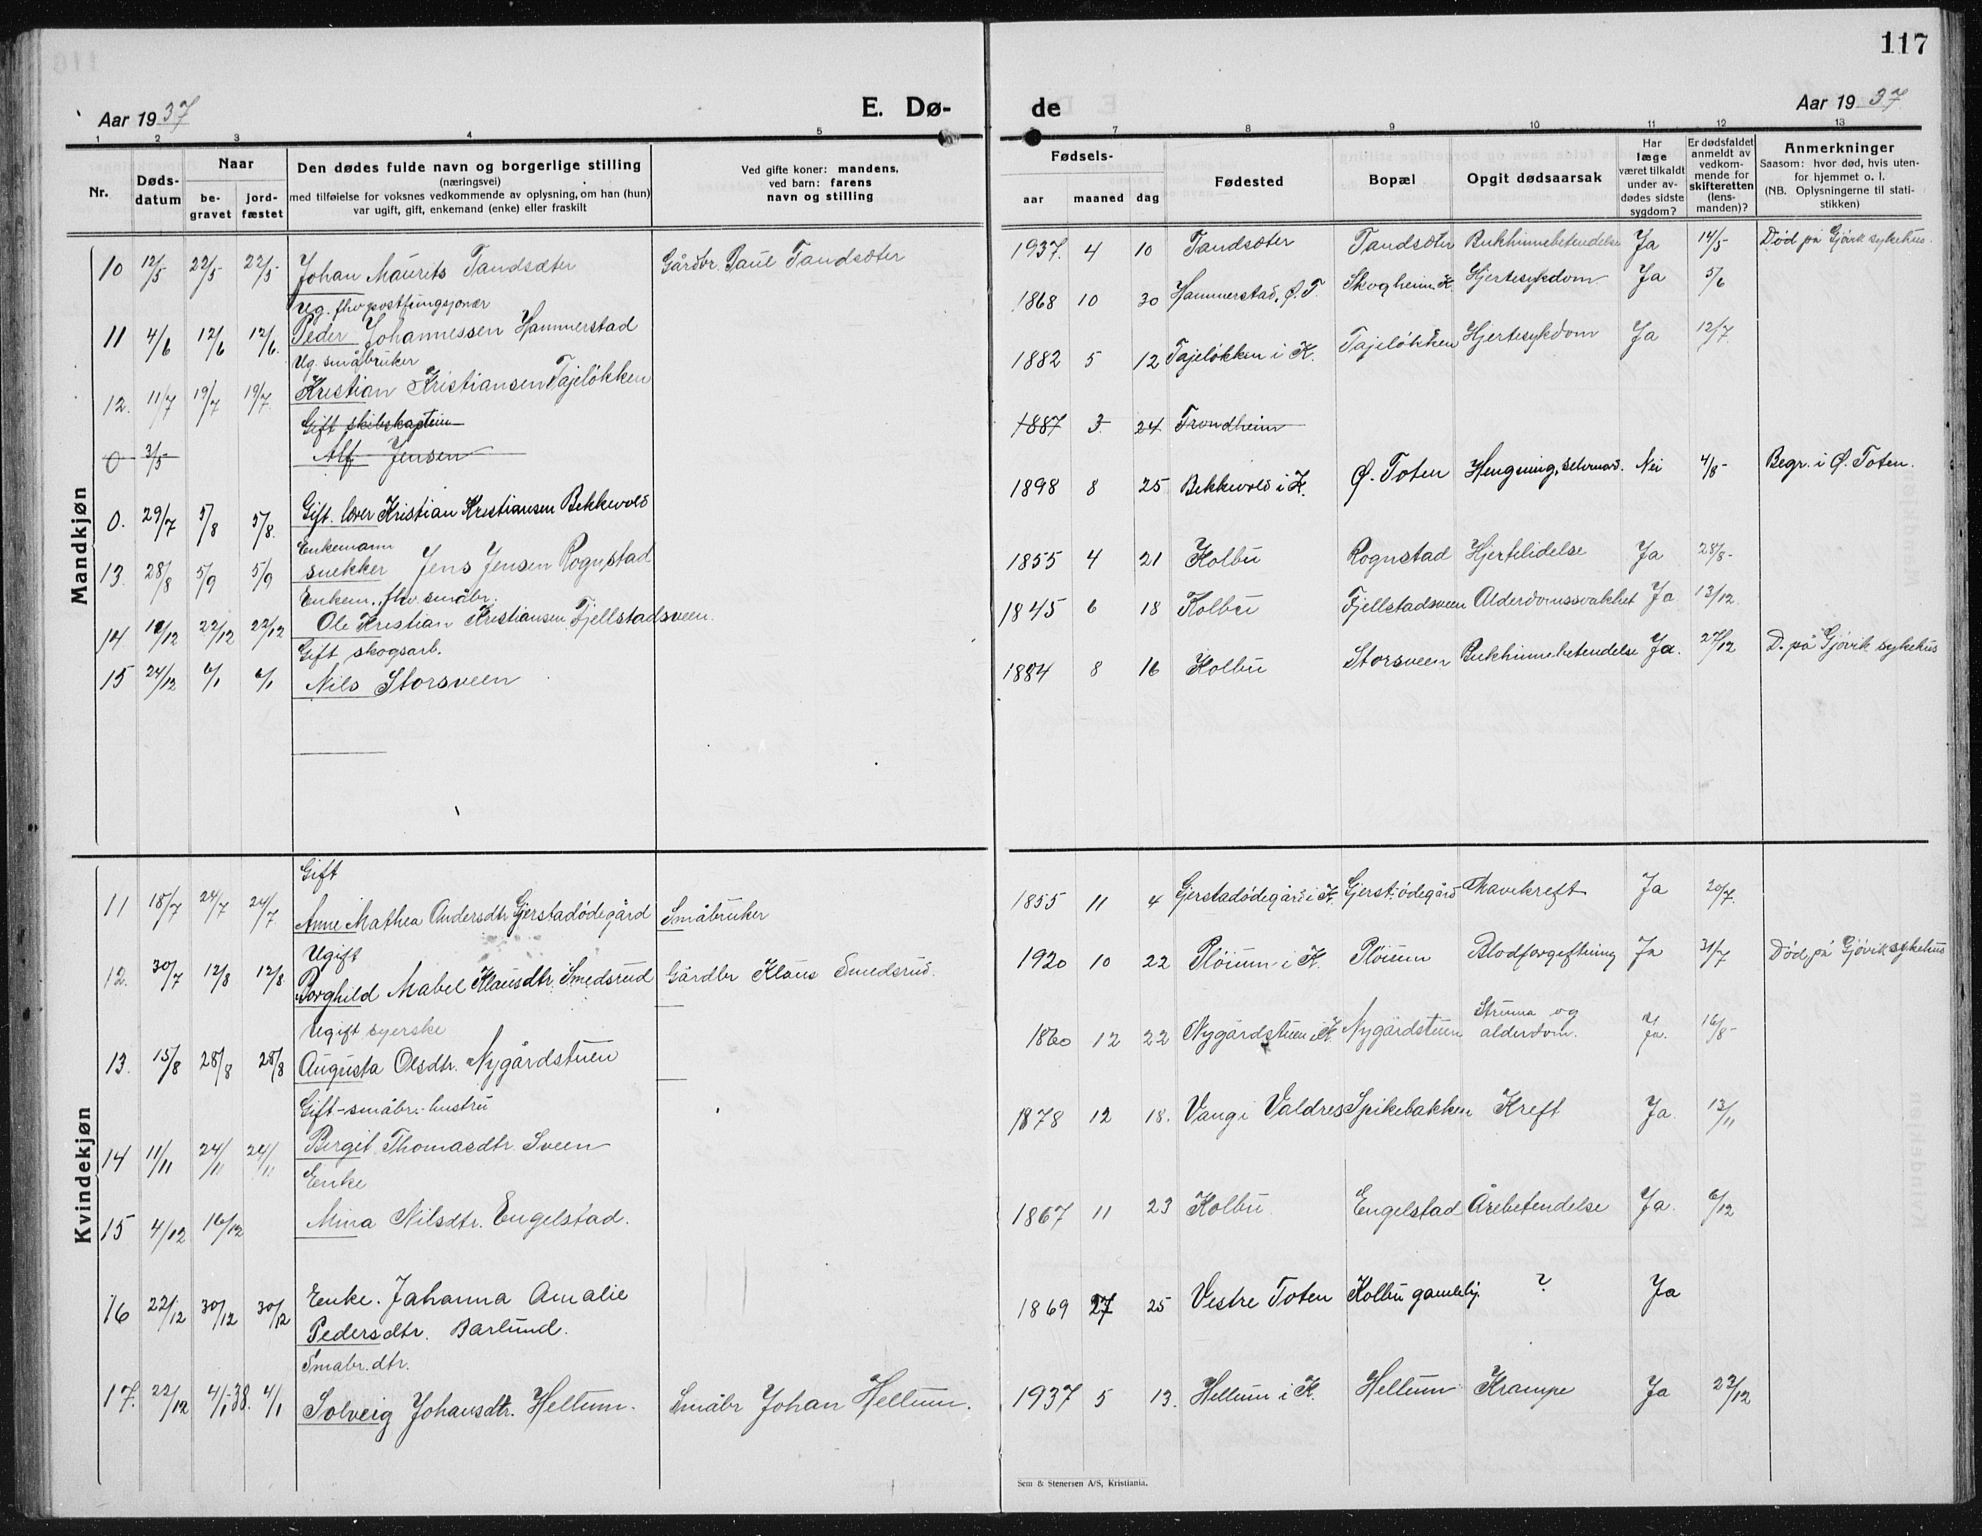 117
Aar 1937
E. Dø-
de
Aar 1937
1 2 3 4 5 7 8 9 10 11 12 13
Nr.
Døds-
datum
Naar
be-
gravet
jord-
fæstet
Den dødes fulde navn og borgerlige stilling
(næringsvei)
med tilføielse for voksnes vedkommende av oplysning, om han (hun)
var ugift, gift, enkemand (enke) eller fraskilt
Ved gifte koner: mandens,
ved barn: farens
navn og stilling
Fødsels-
aar maaned dag
Fødested
Bopæl
Opgit dødsaarsak
Har
læge
været tilkaldt
under av-
dødes sidste
sygdom?
Er dødsfaldet
anmeldt av
vedkom-
mende for
skifteretten
(lens-
manden)?
Anmerkninger
Saasom: hvor død, hvis uten-
for hjemmet o. l.
(NB. Oplysningerne til stati-
stikken)
Mandkjøn
10 12/5 22/5 22/5 Johan Maurits Tandsæter Gårdbr. Paul Tandsæter 1937. 4 10 Tandsæter Tandsæter Bukhinnebetendelse Ja 14/5 Død på Gjøvik sykehus.
Ug. fhv. postfungsjonær
11 4/6 12/6 12/6. Peder Johannessen Hammerstad 1868 10 30 Hammerstad, Ø. T. Skogheim, K. Hjertesykdom Ja 5/6
Ug. småbruker
12. 11/7 19/7 19/7. Kristian Kristiansen Tajeløkken 1882 5 12 Tajeløkken i K. Tajeløkken Hjertesykdom Ja 12/7.
Gift skibskaptein
0 3/5 Alf Jensen 1887 3 24 Trondheim
0. 29/7 5/8 5/8. Gift. Kristian Kristiansen Bekkevold 1898 8 25 Bekkevold i K. Ø. Toten Hengning, selvmord. Nei 4/8- Begr. i Ø. Toten.
Enkemann
13. 28/8 5/9 5/9 snekker Jens Jensen Rognstad 1855 4 21 Kolbu Rognstad Hjertelidelse Ja 28/8-
Enkem., fhv. småbr.
14 /12 22/12 22/12 Ole Kristian Kristiansen Fjellstadsveen. 1845 6 18 Kolbu Fjellstadsveen Alderdomssvakhet Ja 13/12
Gift skogsarb.
15 24/12 6/1 6/1 Nils Storsveen 1884 8 16 Kolbu Storsveen Bukhinnebetendelse Ja. 27/12 D. på Gjøvik sykehus
Kvindekjøn
Gift
11 18/7 24/7 24/7 Anne Mathea Andersdtr. Gjerstadødegård Småbruker 1855 11 4 Gjerstadødegård i K. Gjerst.ødegård Mavekreft Ja 20/7.
Ugift
12. 30/7 12/8 12/8 Borghild Mabel Klausdtr. Smedsrud Gårdbr Klaus Smedsrud. 1920 10 22 Pløium i K. Pløium Blodforgiftning Ja 31/7 Død på Gjøvik sykehus
Ugift syerske
13. 15/8 28/8 28/8 Augusta Olsdtr. Nygårdstuen 1860 12 22 Nygårdstuen i K. Nygårdstuen Struma og
alderdom. Ja. 16/8-
Gift-småbr.-hustru
14 11/11 24/11 24/11 Bergit Thomasdtr. Sveen 1878 12 18. Vang i Valdres Spikebakken Kreft Ja. 13/11
Enke
15 4/12 16/12 Mina Nilsdtr. Engelstad. 1867 11 23 Kolbu Engelstad Årebetendelse Ja. 6/12
16 22/12 30/12 30/12 Enke. Johanna Amalie
Pedersdtr. Barlund. 1869 25 Vestre Toten Kolbu gamlehj. ? Ja
Småbr. dtr.
17. 22/12 4/1-38. 4/1 Solveig Johansdtr. Hellum. Småbr Johan Hellum. 1937 5 13. Hellum i K. Hellum Krampe Ja 23/12
Sem & Stenersen A/S, Kristiania.